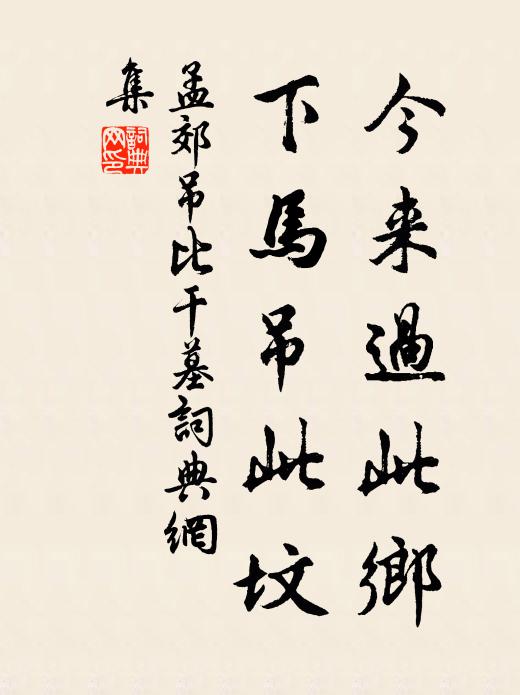 今来過此鄉
下馬吊此坟
孟郊吊比干墓詞典網
集
詞典
网印